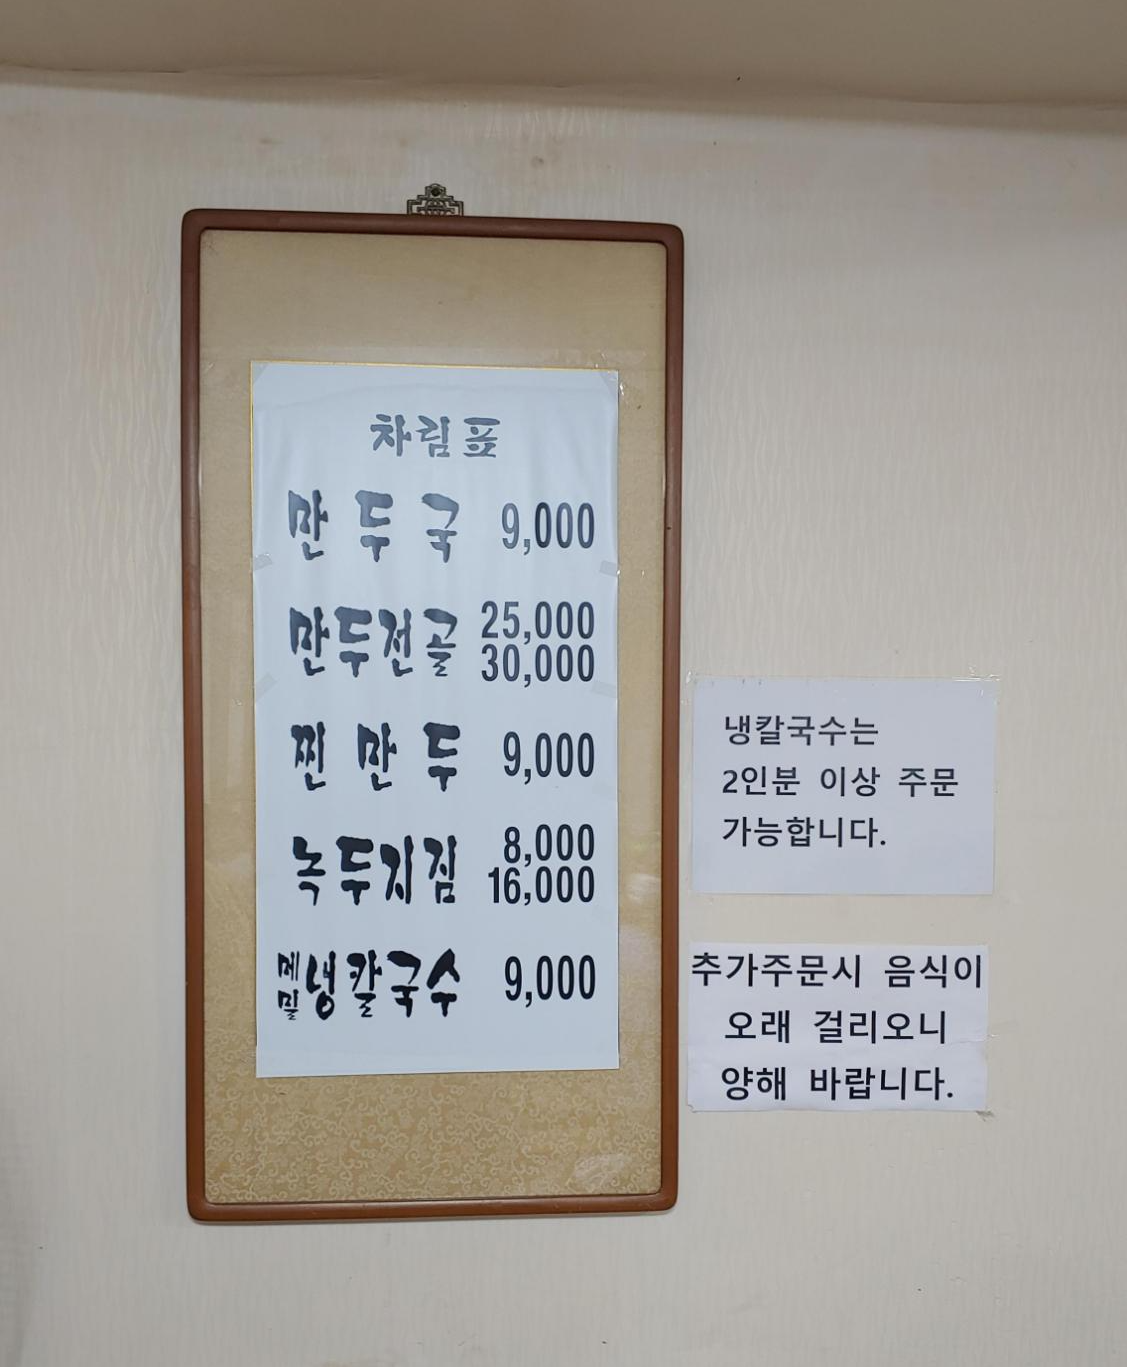 차림표
만두국 9,000
만두전골 25,000
30,000
찐만두 9,000
녹두지짐 8,000
16,000
메밀냉칼국수 9,000
냉칼국수는
2인분 이상 주문
가능합니다.
추가주문시 음식이
오래 걸리오니
양해 바랍니다.